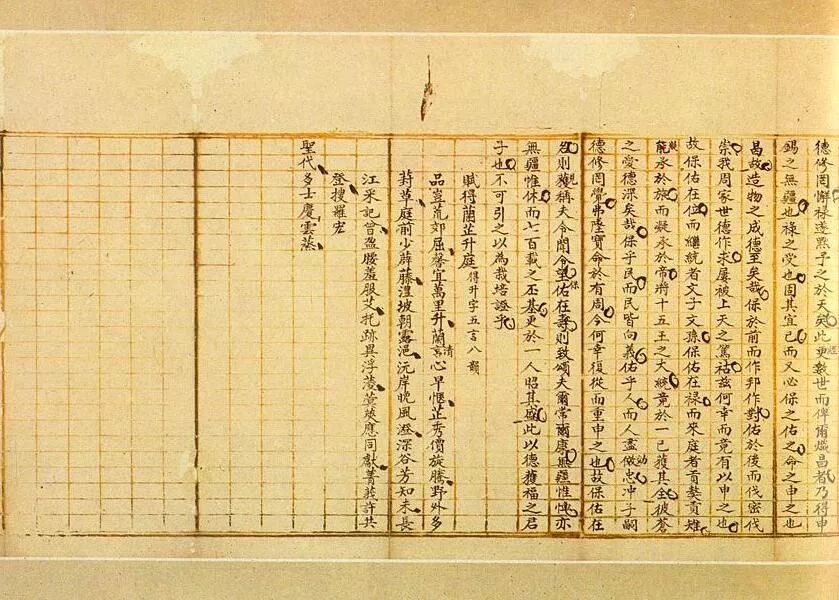 德修罔懈祿遂熙予之於天矣此更數世而俾爾熾昌者乃得申
錫之無疆也祿之受也固其宜已而又必保之佑之命之申之也
昌故造物之成德至矣哉保於前而作邦作對佑於後而伐密伐
崇我周家世德作求屢被上天之篤祜茲何幸而竟有以申之也
故保佑在位而繼統者文子文孫保佑在祿而來庭者貢獒貢雉
承於旅而凝承於常將十五王之大統竟於一已獲其全彼蒼
之愛德深矣哉保乎民而民皆向義佑乎人而人盡倣忠沖子嗣
德修罔覺弗隆寶命於有周今何幸復從而重申之也故保佑在
名則獲稱夫令聞令望佑在壽則致頌夫爾常爾康無疆惟愧亦
無疆惟休而七百載之丕基更於一人昭其盛此以德獲福之君
子也不可引之以為栽培證乎
賦得蘭芷升庭得升字五言八韻
品豈荒郊屈馨宜萬里升蘭言心早愜芷秀價旋騰野外多
葑草庭前少薜藤澧坡朝露浥沅岸晚風澄深谷芳知未長
江采記曾盈腰羞服艾托跡異浮菱萱莢應同獻菁莪許共
登搜羅宏
聖代多士慶雲蒸